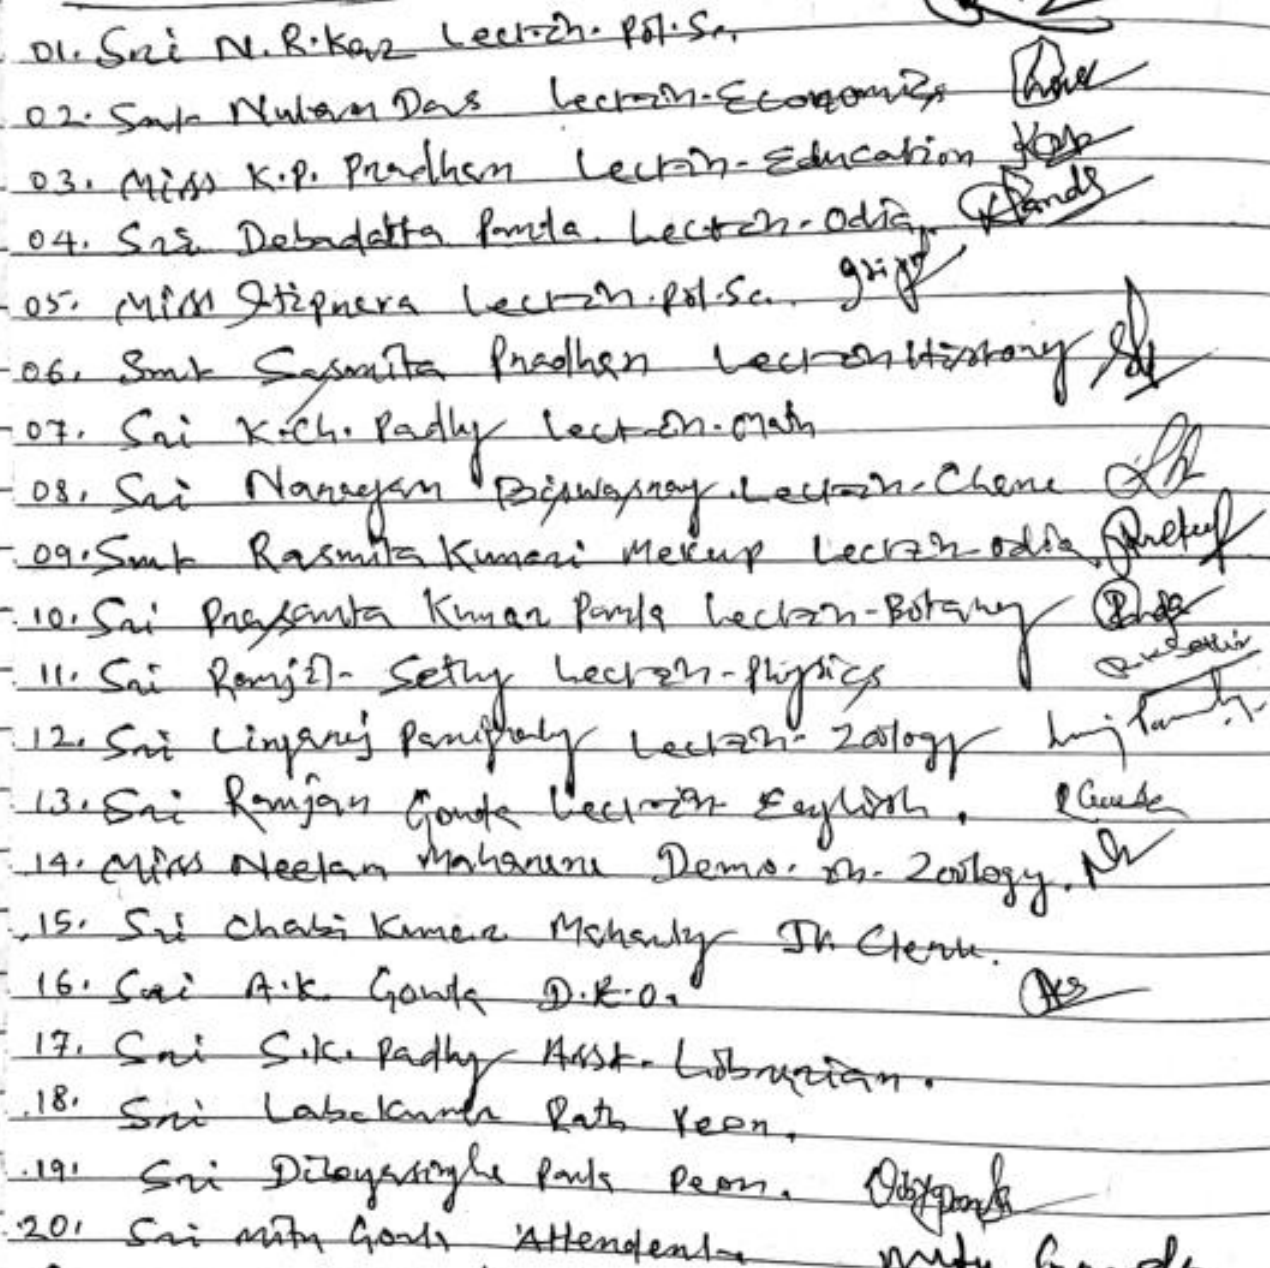 01. Sri N.R.Kar Lect. in. Pol.Sc.
02. Smt Nutan Das Lect. in-Economics
03. Miss K.P. Pradhan Lect. in-Education
04. Sri Debadatta Panda. Lect. in-Odia.
05. Miss Lect. in. Pol.Sc.
06. Smt Sasmita Pradhan Lect. in History
07. Sri K.Ch. Padhy Lect. in. Math
08. Sri Narayan Biswasray. Lect. in-Chem
09. Smt Rasmita Kumari Mekup Lect. in Odia.
10. Sri Prasanta Kumar Panda Lect. in-Botany
11. Sri Sethy Lect. in-Physics
12. Sri Lingaraj Panigrahy Lect. in-Zoology
13. Sri Ranjan Gouda Lect. in English.
14. Miss Neelam Maharana Demo. in. Zoology.
15. Sri Chabi Kumar Mohanty Jr. Clerk.
16. Sri A.K. Gouda D.E.O.
17. Sri S.K. Padhy Asst. Librarian.
18. Sri Labakumar Rath Peon.
19. Sri Panda Peon. 
20. Sri Mitu Gouda Attendent